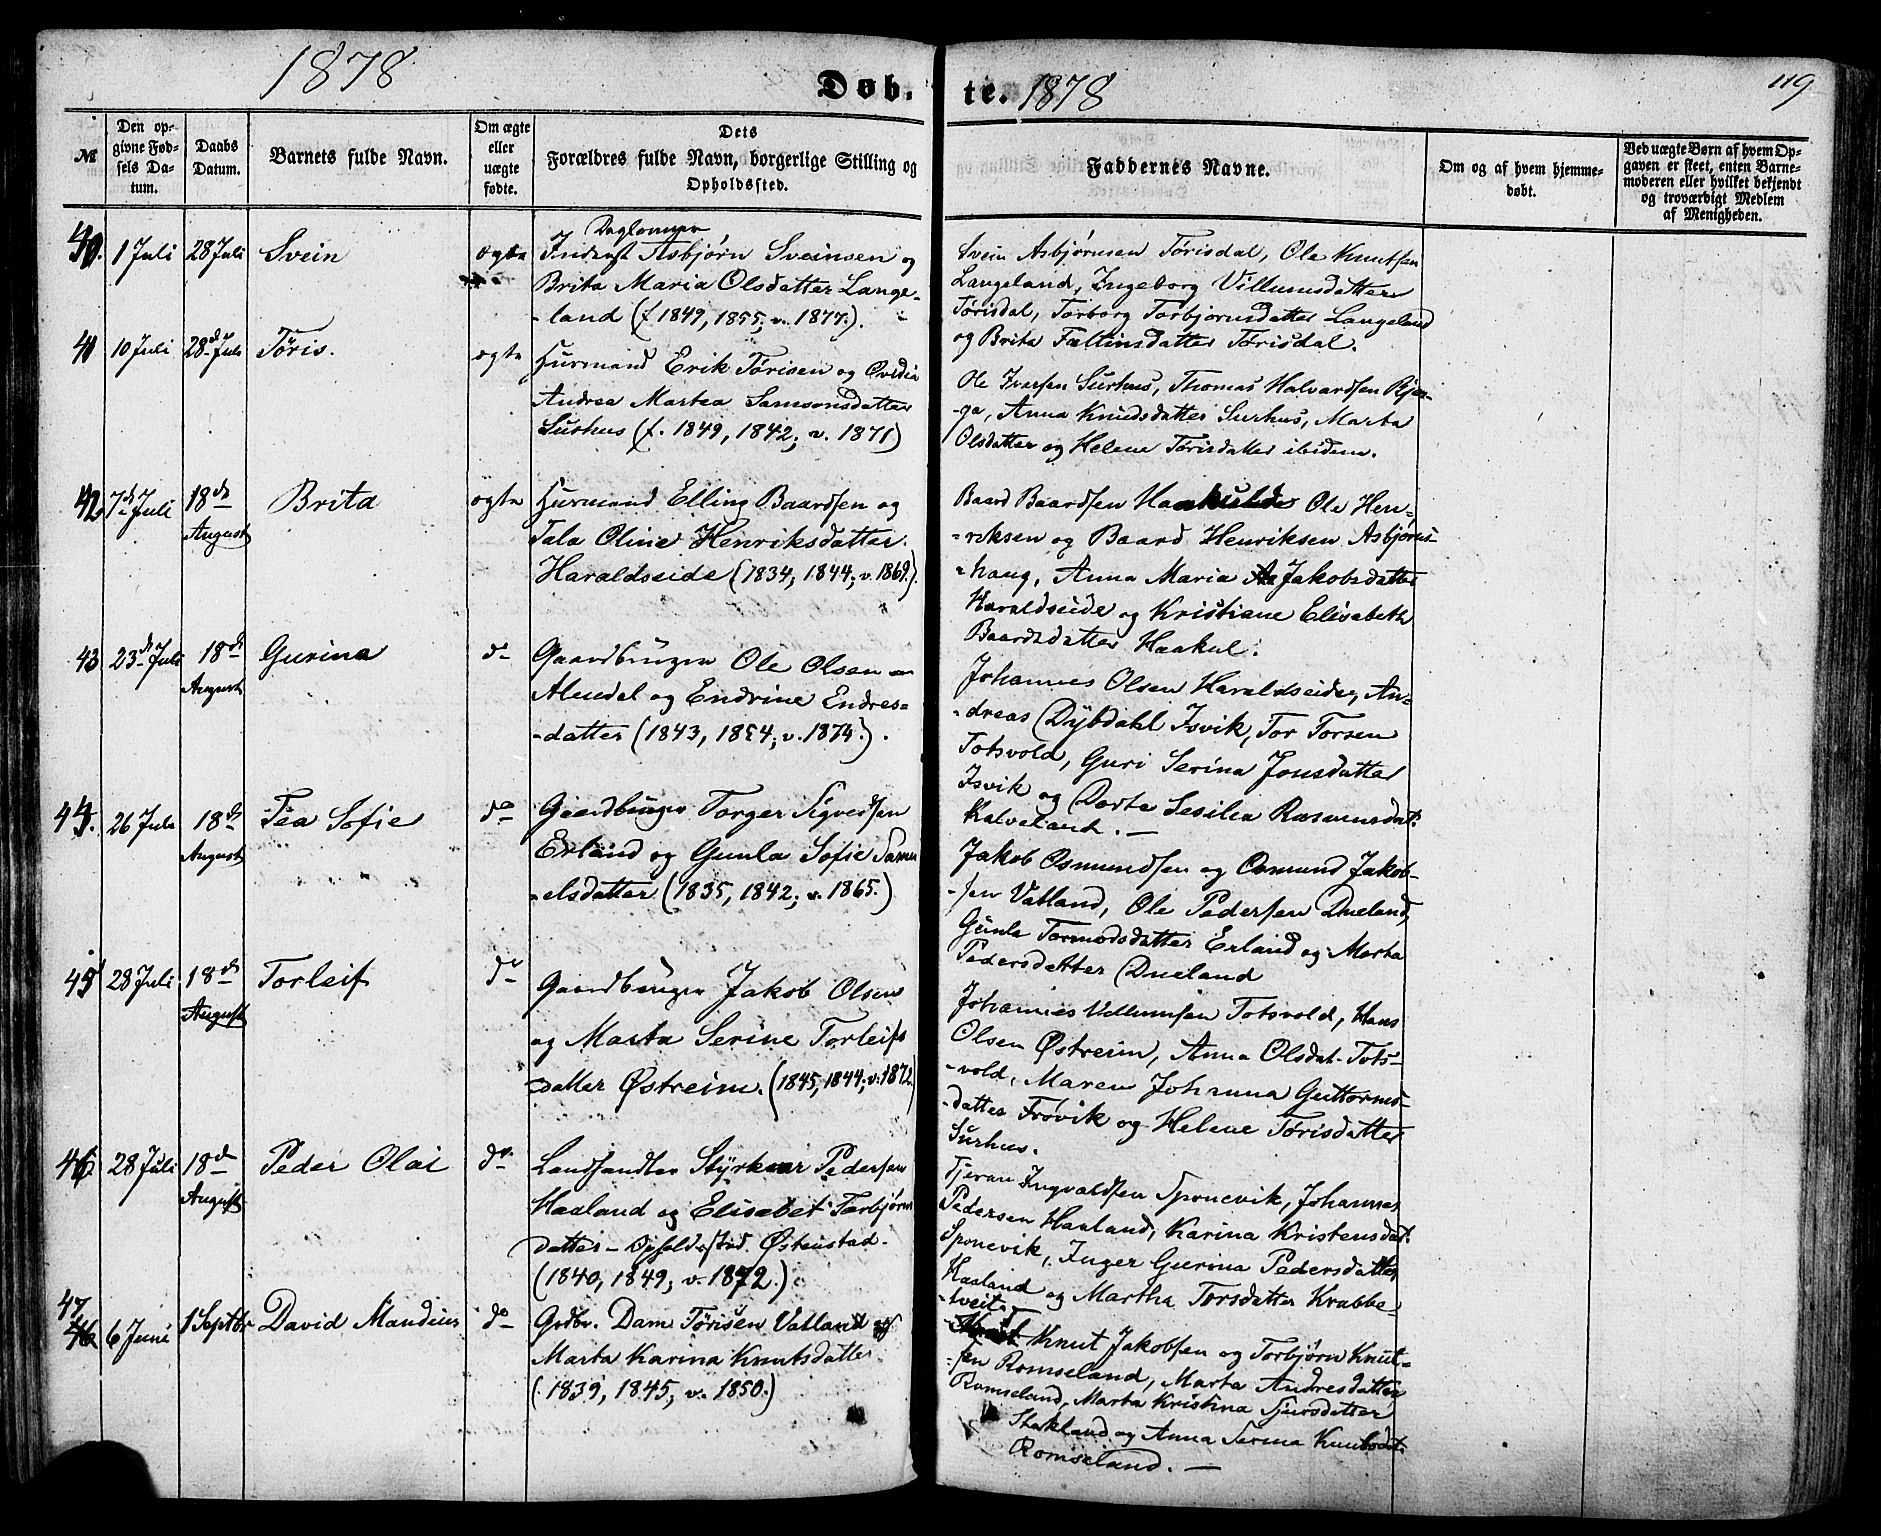 1878
Døb-
te. 1878
119
№
Den op-
givne Fød-
sels Da-
tum.
Daabs
Datum.
Barnets fulde Navn.
Om ægte
eller
uægte
fødte.
Dets
Forældres fulde Navn, borgerlige Stilling og
Opholdssted.
Faddernes Navne.
Om og af hvem hjemme-
døbt.
Ved uægte Børn af hvem Op-
gaven er skeet, enten Barne-
moderen eller hvilket bekjendt
og troværdigt Medlem
af Menigheden.
40. 1 Juli 28 Juli Svein ægte
Daglønner
Inderst Asbjørn Sveinsen og
Brita Maria Olsdatter Lange-
-land (f. 1849, 1855; v. 1877.).
Svein Asbjørnsen Tørisdal, Ole Knutsen
Langeland, Ingeborg Villumsdatter
Tørisdal, Torborg Torbjørnsdatter Langeland
og Brita Faltinsdatter Tørisdal.
41 10 Juli 28d Juli Tøris. ægte
Husmand Erik Tørisen og Ovidia
Andrea Martea Samsonsdatter
Surhus (f. 1849, 1842; v. 1871)
Ole Iversen Surhus, Thomas Halvardsen Bjer-
-ga, Anna Knudsdatter Surhus, Marta
Olsdatter og Helene Tørisdatter ibidem.
42 7d Juli 18de
August
Brita ægte
Husmand Elling Baardsen og
Tala Oline Henriksdatter
Haraldseide (1834, 1844; v. 1869.).
Baard Baardsen Ole Hen-
-riksen og Baard Henriksen Asbjørns-
-haug, Anna Maria Jakobsdatter
Haraldseide og Kristiane Elisabeth
Baardsdatter Haakul.
43 23d Juli 18de
August
Gurina do
Gaardbruger Ole Olsen
Almdal og Endrine Endres-
-datter (1843, 1854; v. 1874.).
Johannes Olsen Haraldseide, An-
-dreas Dybdahl Isvik, Tor Torsen
Totsvold, Guri Serina Jonsdatter
Isvik og Dorte Sesilia Rasmusdat.
Kalveland. —
44. 26 Juli 18de
August
Tea Sofie do
Gaardbruger Torger Sigvordsen
Erland og Gunla Sofie Samu
-elsdatter (1835, 1842; v. 1865.)
Jakob Osmundsen og Osmund Jakob-
-sen Vatland, Ole Pedersen Dueland,
Gunla Tormodsdatter Erland og Marta
Pedersdatter Dueland
45 28 Juli 18de
August
Torleif do
Gaardbruger Jakob Olsen
og Marta Serine Torleifs
-datter Østreim. (1845, 1844; v. 1872.)
Johannes Vellumsen Totsvold, Hans
Olsen Østreim, Anna Olsdat. Tots-
-vold, Maren Johanna Guttorms-
-datter Frøvik og Helene Tørisdatter
Surhus.
46 28 Juli 18de
August
Peder Olai do
Landhandler Styrkaar Pedersen
Haaland og Elisabet Torbjørns
datter – Opholdssted. Østenstad.
(1840, 1849, v. 1872.)
Tjeran Ingvaldsen Sponevik, Johannes
Pedersen Haaland, Karina Kristensdat.
Sponevik, Inger Gurina Pedersdatter
Haaland og Martha Torsdatter Krabbe-
-tveit.
47
46 6 Juni 1 Septbr David Mandius do
Gdbr. Dam Tørisen Vatland og
Marta Karina Knutsdatter
(1839, 1845, v. 1850.)
Knut Jakobsen og Torbjørn Knut-
-sen Romseland, Marta Andresdatter
Romseland, Marta Kristina Sjursdatter
Stakland og Anna Serina Knutsdat.
Romseland. —